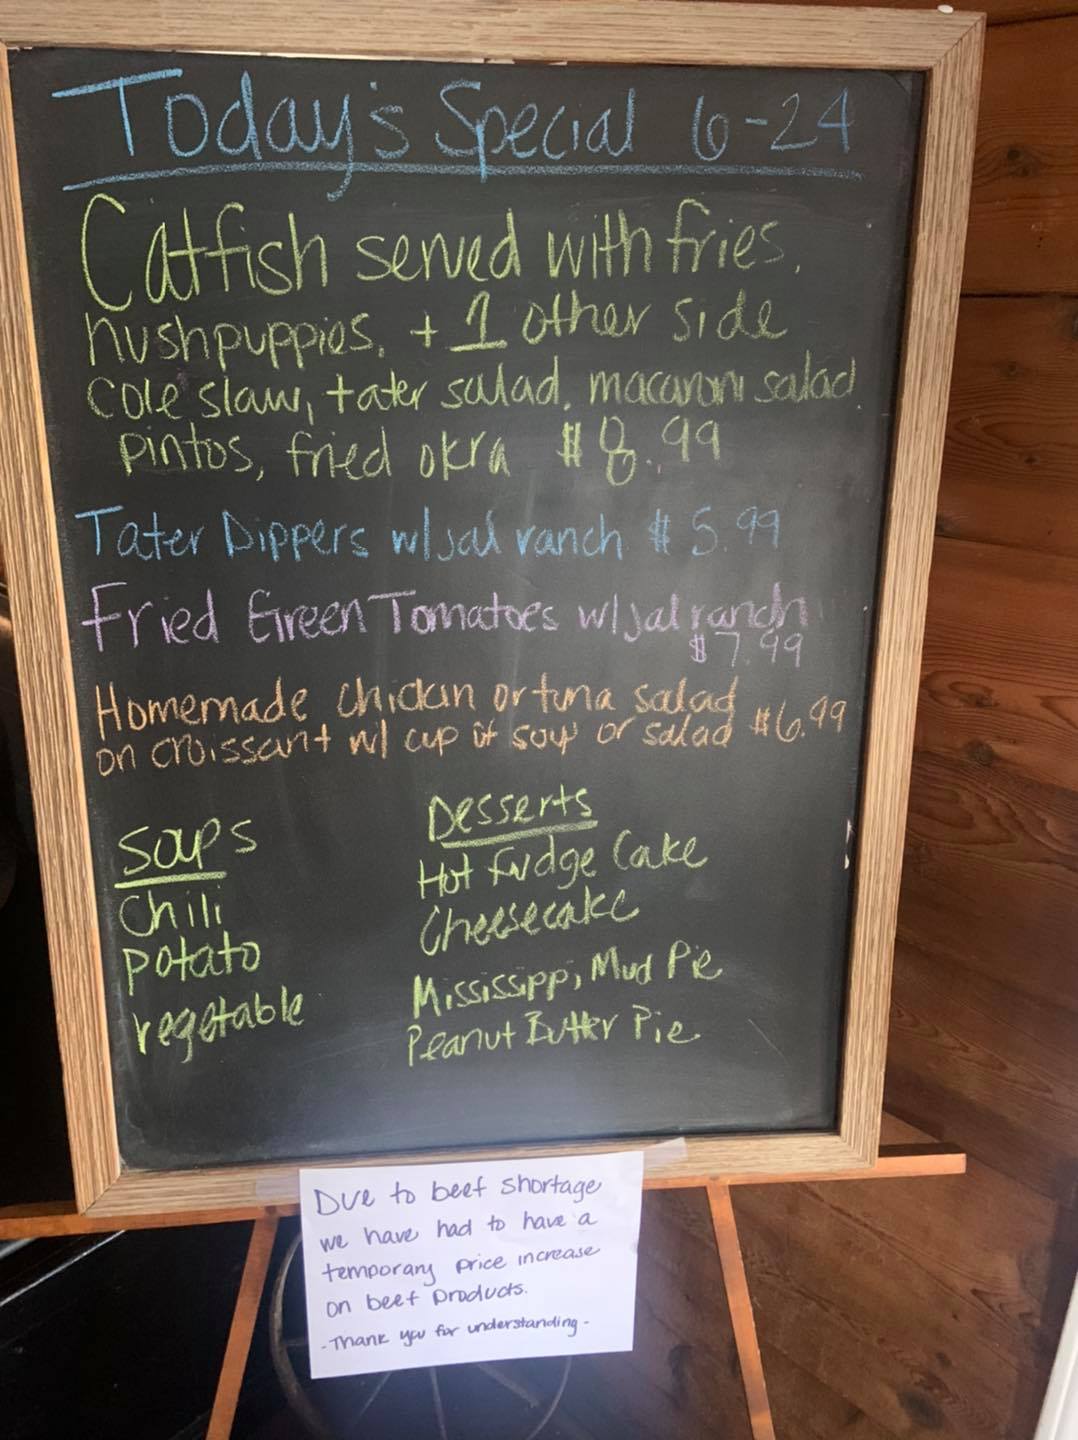 Today's Special 6-24
Catfish served with fries,
hushpuppies, + 1 other side
cole slaw, tater salad, macaroni salad,
pintos, fried okra $8.99
Tater Dippers w/jal ranch $5.99
Fried Green Tomatoes w/jal ranch
$7.99
Homemade chicken or tuna salad
on croissant w/ cup of soup or salad $6.99
Soups
Chili
potato
vegetable
Desserts
Hot Fudge Cake
Cheesecake
Mississippi Mud Pie
Peanut Butter Pie
Due to beef shortage
we have had to have a
temporary price increase
on beef products.
-Thank you for understanding-